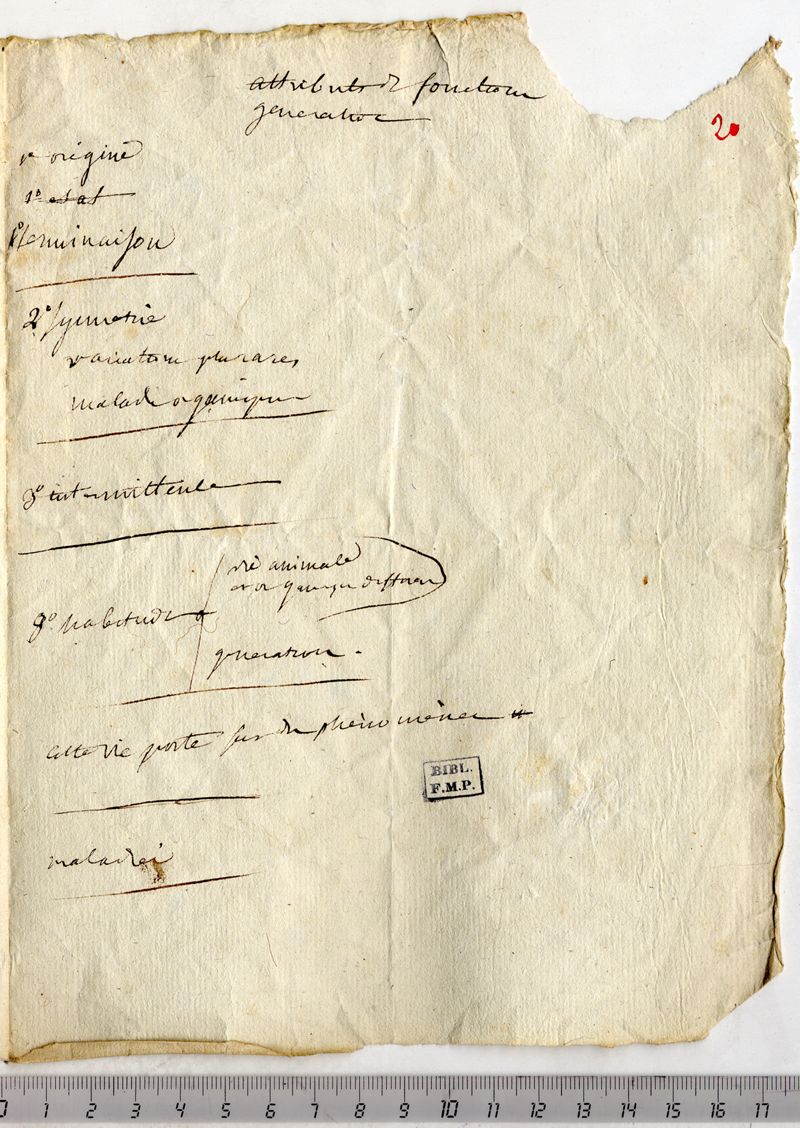 attributs de fonction
generation
20
1° origine
1° estat
1° terminaison
2° symetrie
variation plus rares
maladie organique
3° intermittence
3° habitude
vie animale
et organique different
generation.
cette vie porte sur des phenomenes
BIBL.
F.M.P.
maladies
0 1 2 3 4 5 6 7 8 9 10 11 12 13 14 15 16 17